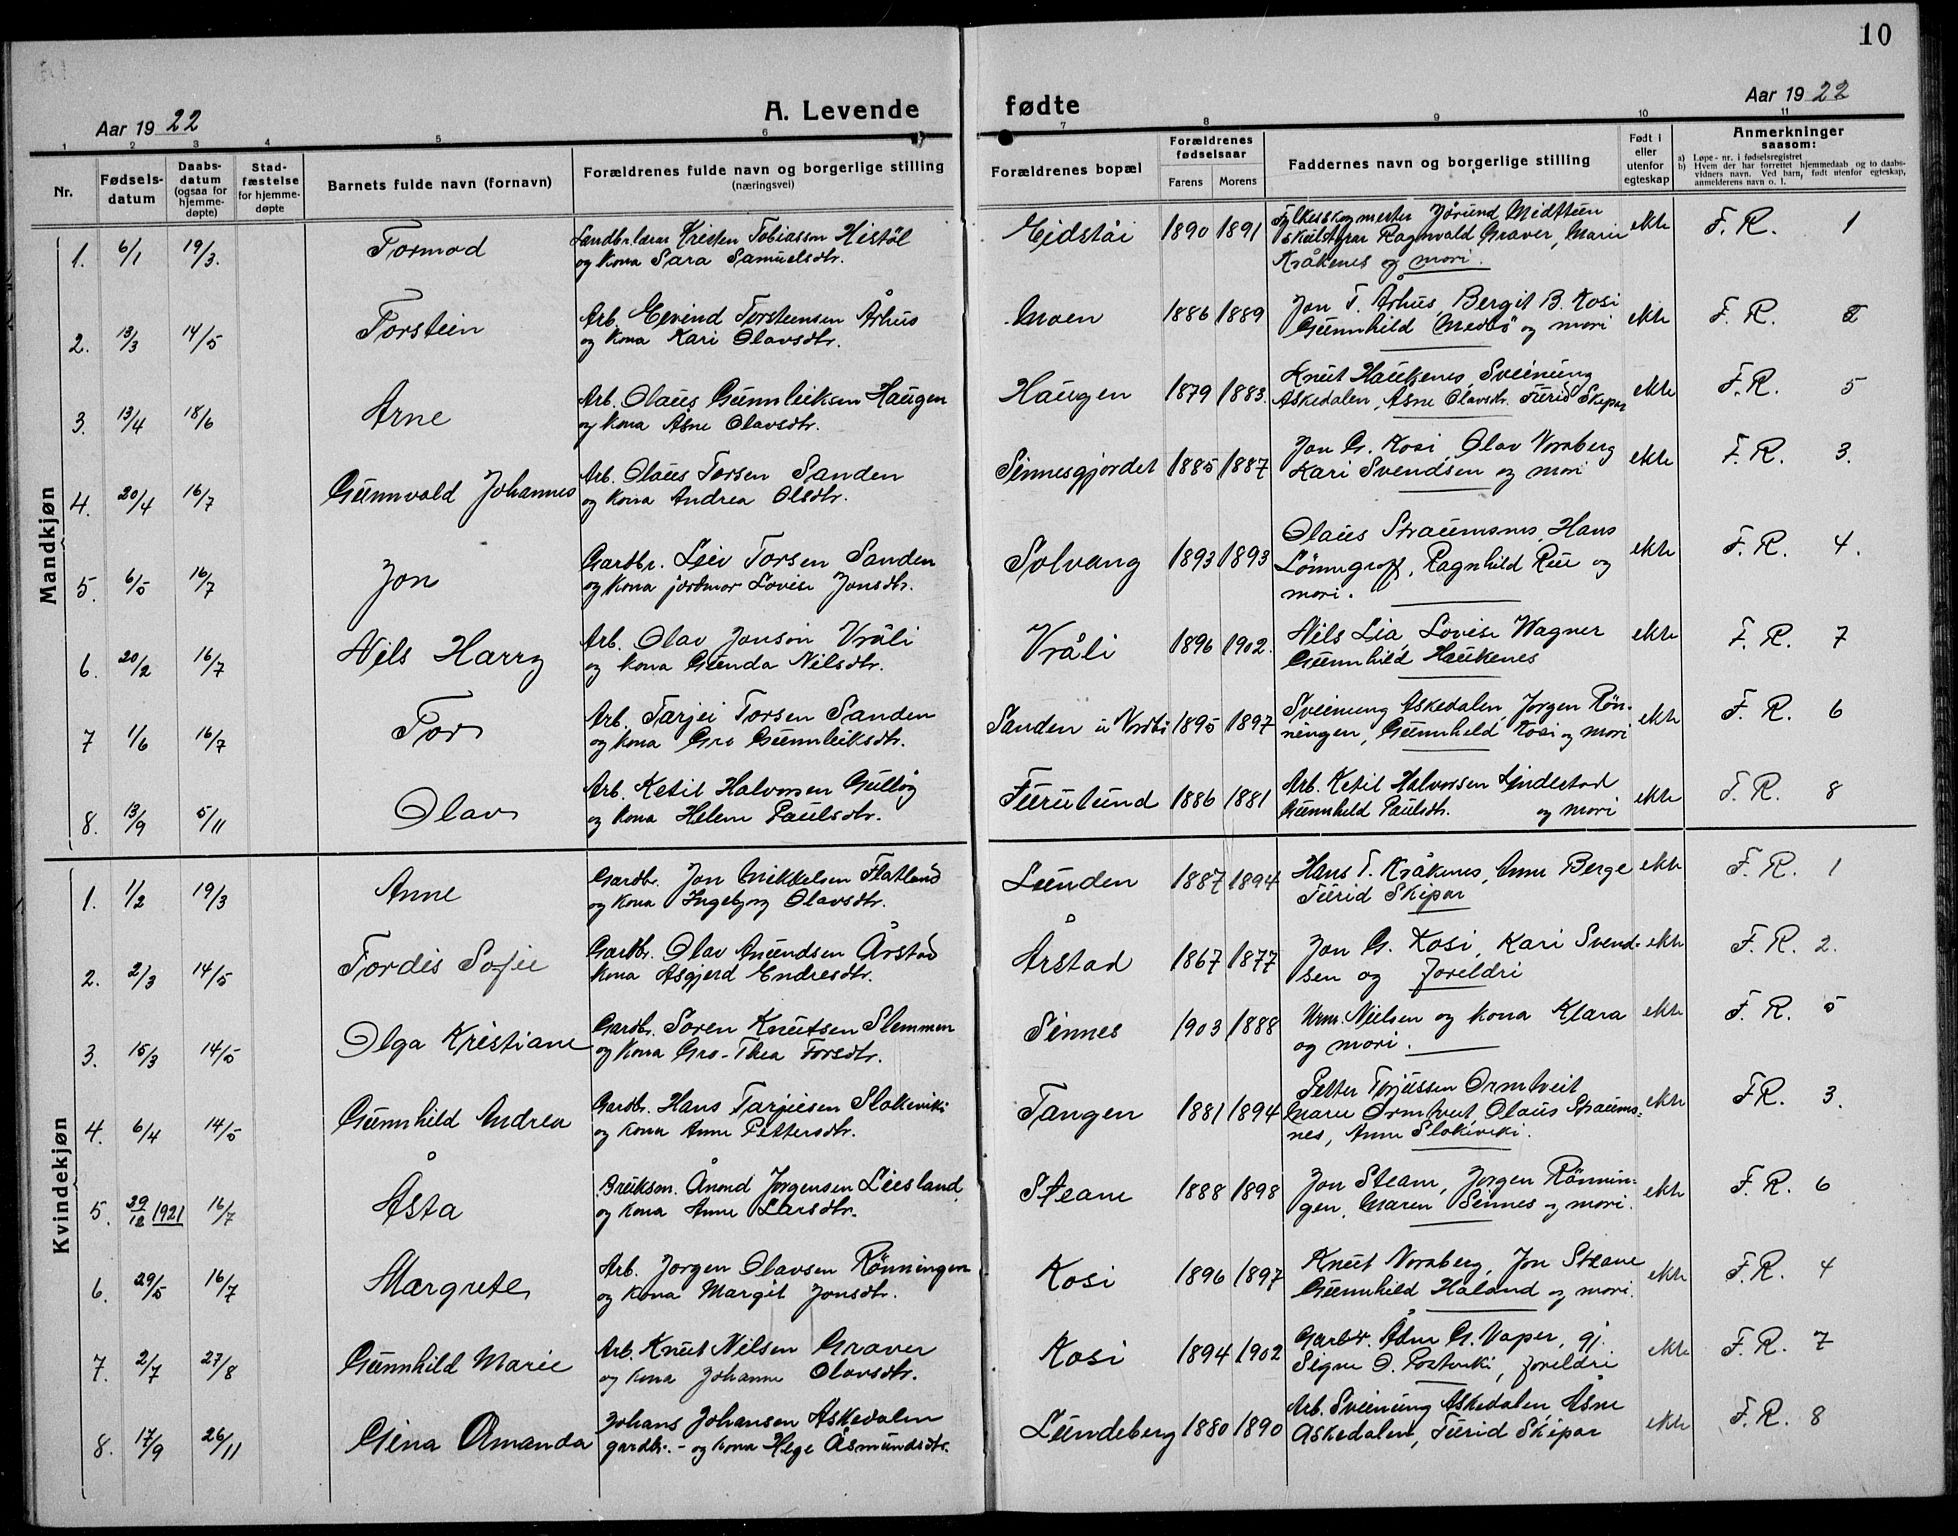 10
Aar 1922 A. Levende fødte Aar 1922
1 2 3 4 5 6 7 8 9 10 11
Nr. Fødselsdatum Daabsdatum (ogsaa for hjemmedøpte) Stadfæstelse for hjemmedøpte Barnets fulde navn (fornavn) Forældrenes fulde navn og borgerlige stilling (næringsvei) Forældrenes bopæl Forældrenes fødselsaar Farens Morens Faddernes navn og borgerlige stilling Født i eller utenfor egteskap Anmerkninger saasom:
a) Løpe-nr. i fødselsregistret
b) Hvem der har forrettet hjemmedaab og to daabsvidners navn. Ved barn, født utenfor egteskap, anmelderens navn o. l.
Mandkjøn
1. 6/1 19/3. Tormod Landbr.lærar Kristen Tobiasson Histöl
og kona Sara Samuelsdtr. Eidstöi 1890 1891 Fylkesskogmester Jörund Midttün
skulestyrar Ragnvald Graver, Marie
Kråkenes og mori. ekte F. R. 1
2. 13/3 14/5 Torstein Arb. Eivind Torsteinsen Århus
og kona Kari Olavsdtr. Moen 1886 1889 Jon T. Århus, Bergit B. Kosi
Gunnhild Medös og mori ekte F. R. 2
3. 13/4 18/6 Arne Arb. Olaus Gunnleiksen Haugen
og kona Åsne Olavsdtr. Haugen 1879 1883. Knut Haukenes, Sveinung
Askedalen, Åsne Olavsdtr. Turid Skipar ekte F. R. 5
4. 20/4 16/7 Gunnvald Johannes Arb. Olaus Torsen Sanden
og kona Andrea Olsdtr. Sinnesgjordet 1885 1887 Jon G. Kosi, Olav Noraberg
Kari Svendsen og mori ekte F. R. 3.
5. 6/5 16/7 Jon Gardbr. Leiv Torsen Sanden
og kona jordmor Lovise Jonsdtr. Solvang 1893 1893 Olaus Straumsnes, Hans
Lönnegroff, Ragnhild Rue og
mori. ekte F. R. 4.
6. 20/2 16/7 Nils Harry Arb. Olav Jonson Vråli
og kona Gunda Nilsdtr. Vråli 1896 1902. Nils Lia, Lovise Wagner
Gunnhild Haukenes ekte F. R. 7
7 1/6 16/7 Tor Arb. Tarjei Torsen Sanden
og kona Gro Gunnleiksdtr. Sanden u Nordbö 1895 1897 Sveinung Askedalen, Jörgen Rön-
ningen, Gunnhild Kosi og mori ekte F. R. 6
8. 13/9 5/11 Olav Arb. Ketil Halvorsen Gullög
og kona Helene Paulsdtr. Furulund 1886 1881 Arb. Ketil Halvorsen Lindestad
Gunnhild Paulsdtr. og mori ekte F. R. 8
Kvindekjøn
1. 1/2 19/3 Anne Gardbr. Jon Mikkelsen Flatland
og kona Ingebjorg Olavsdtr. Lunden 1887 1894 Hans T. Kråkenes, Anne Berge
Turid Skipar ekte F. R. 1
2. 2/3 14/5 Tordis Sofie Gardbr. Olav Anundsen Årstad
kona Asgjerd Endresdtr. Årstad 1867 1877 Jon G. Kosi, Kari Svend-
sen og foreldri ekte F. R. 2.
3. 15/3 14/5 Olga Kristiane Gardbr. Sören Knutsen Slemmen
og kona Gro-Thea Torsdtr. Sinnes 1903 1888 Urm. Nielsen og kona Klara
og mori. ekte F. R. 5
4. 6/4 14/5 Gunnhild Andrea Gardbr. Hans Tarjeisen Slokeviki
og kona Anne Pettersdtr. Tangen 1881 1894 Petter Torjussen Ormtveit
Maren Ormtveit Olaus Straums-
nes, Anne Slokeviki. ekte F. R. 3.
5. 29/12 1921 16/7 Åsta Bruksm. Ånond Jörgensen Liesland
og kona Anne Larsdtr. Steane 1888 1898 Jon Steane, Jorgen Rönnin-
gen, Maren Sinnes og mori. ekte F. R. 6
6. 29/5 16/7 Margrete Arb. Jorgen Olavsen Rönningen
og kona Margit Jonsdtr. Kosi 1896 1897 Knut Noraberg, Jon Steane
Gunnhild Haland og mori. ekte F. R. 4
7. 2/7 27/8 Gunnhild Marie Arb. Knut Nilsen Graver
og kona Johanne Olavsdtr. Kosi 1894 1902 Gardbr. Ådne G. Vaper, gj.
Signe O. Postviki, foreldri ekte F. R. 7
8. 17/9 26/11 Gina Amanda Johans Johansen Askedalen
gardbr. - og kona Hege Åsmundsdtr. Lundeberg 1880 1890 Arb. Sveinung Askedalen Åsne
Askedalen, Turid Skipar ekte F. R. 8